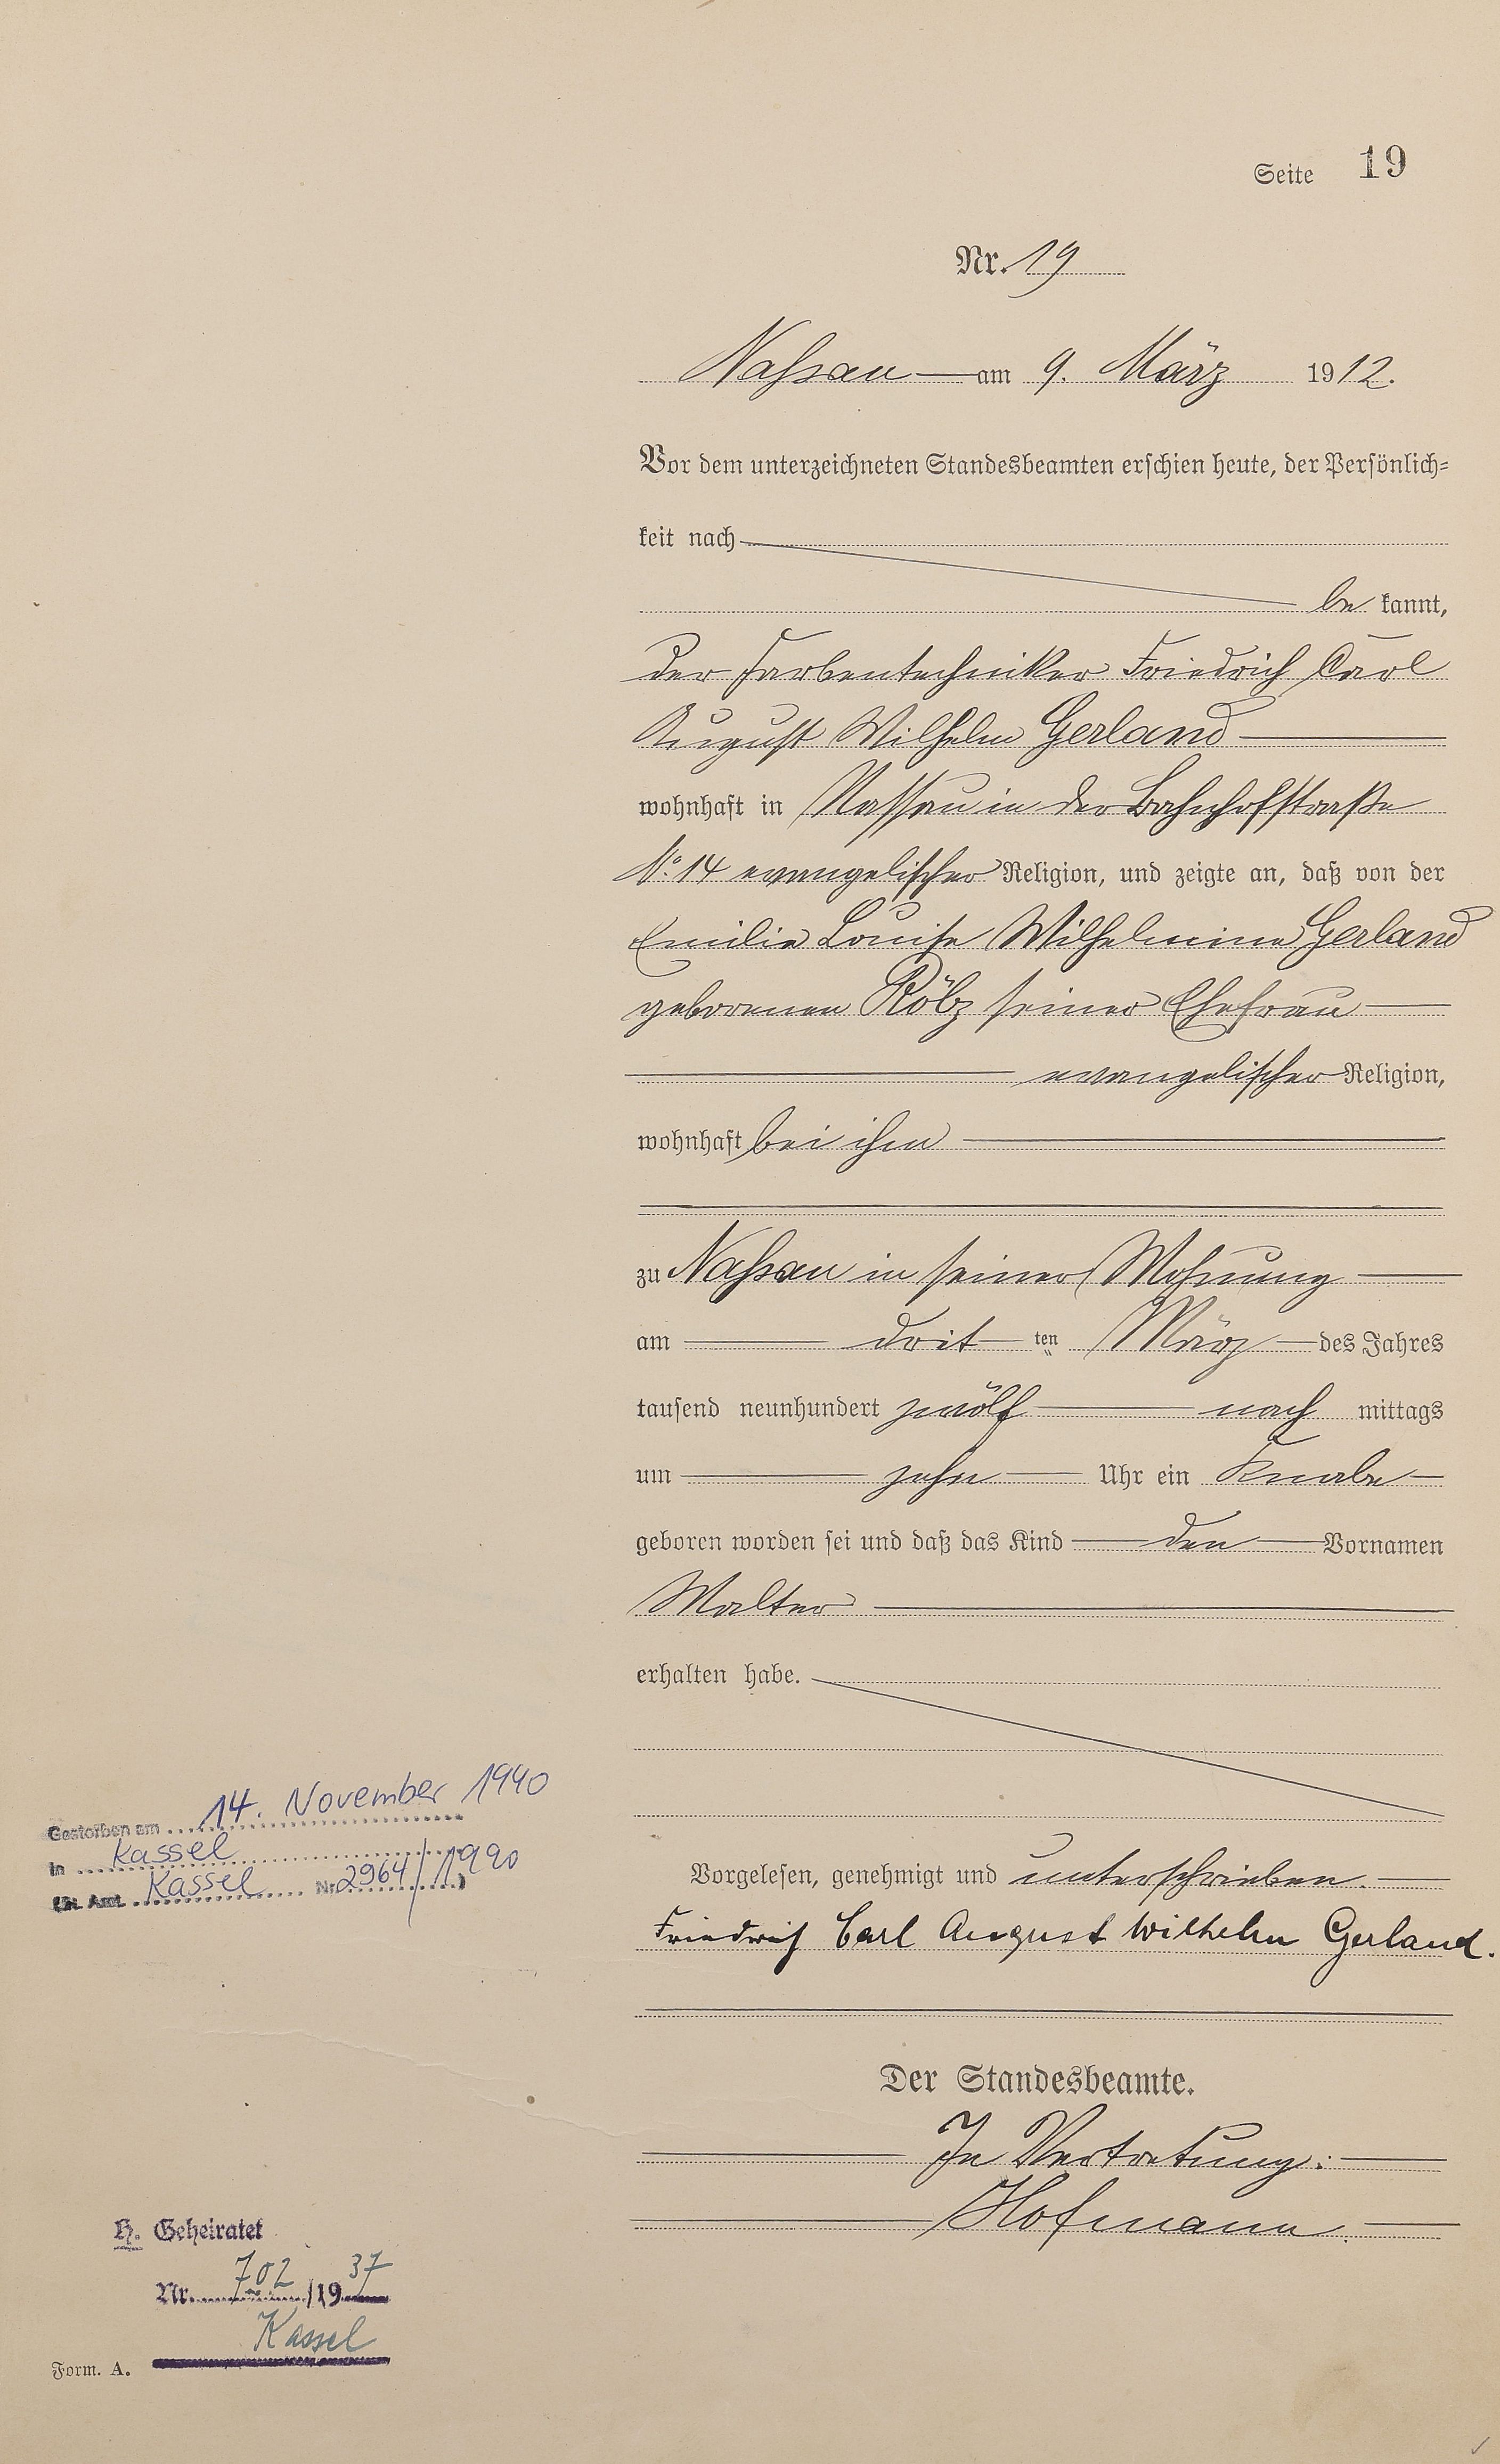 Seite 19
Nr. 19
Nassau am 9. März 1912.
Vor dem unterzeichneten Standesbeamten erschien heute, der Persönlich-
keit nach
be kannt,
der Farbentechniker Friedrich Carl
August Wilhelm Gerland
wohnhaft in Nassau in der Bahnhofstraße
No. 14 evangelischer Religion, und zeigte an, daß von der
Emilie Louise Wilhelmine Gerland
geborenen Rölz seiner Ehefrau
evangelischer Religion,
wohnhaft bei ihm
zu Nassau in seiner Wohnung
am drit ten März des Jahres
tausend neunhundert zwölf nach mittags
um zehn Uhr ein Knabe
geboren worden sei und daß das Kind den Vornamen
Walter
erhalten habe.
Vorgelesen, genehmigt und unterschrieben.
Friedrich Carl August Wilhelm Gerland.
Der Standesbeamte.
In Vertretung:
Hofmann.
Gestorben am 14. November 1990
in Kassel
(St. Amt. Kassel Nr. 2964/1990)
H. Geheiratet
Nr. 702/1937
Kassel
Form. A.